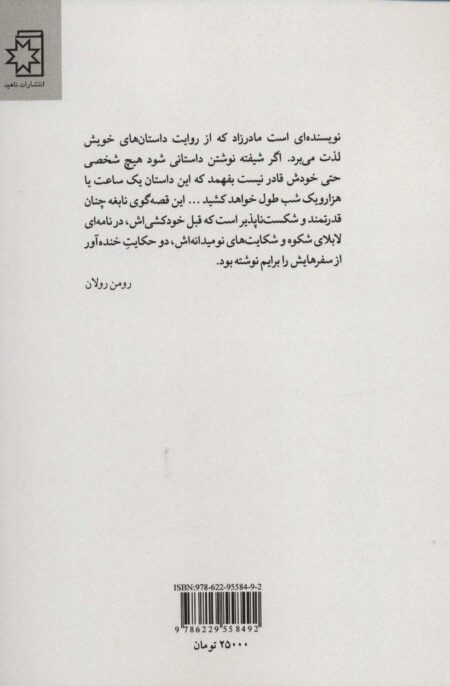 انتشارات ناهید
نویسنده‌ای است مادرزاد که از روایت داستان‌های خویش
لذت می‌برد. اگر شیفته نوشتن داستانی شود هیچ شخصی
حتی خودش قادر نیست بفهمد که این داستان یک ساعت یا
هزارویک شب طول خواهد کشید ... این قصه‌گوی نابغه چنان
قدرتمند و شکست‌ناپذیر است که قبل خودکشی‌اش، در نامه‌ای
لابلای شکوه و شکایت‌های نومیدانه‌اش، دو حکایتِ خنده‌آور
از سفرهایش را برایم نوشته بود.
رومن رولان
ISBN:978-622-95584-9-2
9 786229 558492
۲۵۰۰۰ تومان